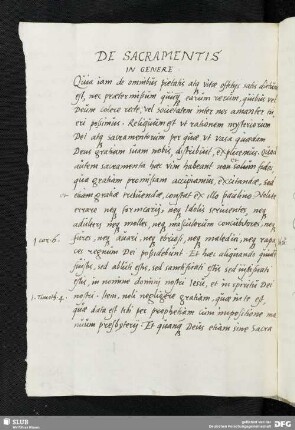 DE SACRAMENTIS
IN GENERE
Quia iam de omnibus pietatis atq vitae officijs satis dictum
est, nec praetermissum quicq earum rerum, quibus vel
Deum colere recte, vel societatem inter nos amanter tu
eri possimus. Reliquum est ut rationem mysteriorum
Dei atq sacramentorum per quae ut vasa quaedam
Deus gratiam suam nobis distribuit, explicemus. Quod
autem sacramenta haec vim habeant non solum fidei,
qua gratiam promissam accipiamus, excitandae, sed
etiam gratiae retinendae, constat ex illo paulino. Nolite
errare neq fornicarij, neq Idolis servientes, neq
adulteri neq molles, neq masculorum concubitores, neq
1 Cor. 6. fures, neq auari, neq ebriosi, neq maledici, neq rapa
ces regnum Dei possidebunt. Et haec aliquando quidam
fuistis, sed abluti estis, sed sanctificati estis sed iustificati
estis, in nomine domini nostri Iesu, et in spiritu Dei
1. Timoth. 4. nostri. Item, noli negligere gratiam, quae in te est,
quae data est tibi per prophetiam cum impositione ma
nuum presbyterij. Et quamq Deus etiam sine sacra
SLUB
Wir führen Wissen.
gefördert von der
Deutschen Forschungsgemeinschaft
DFG